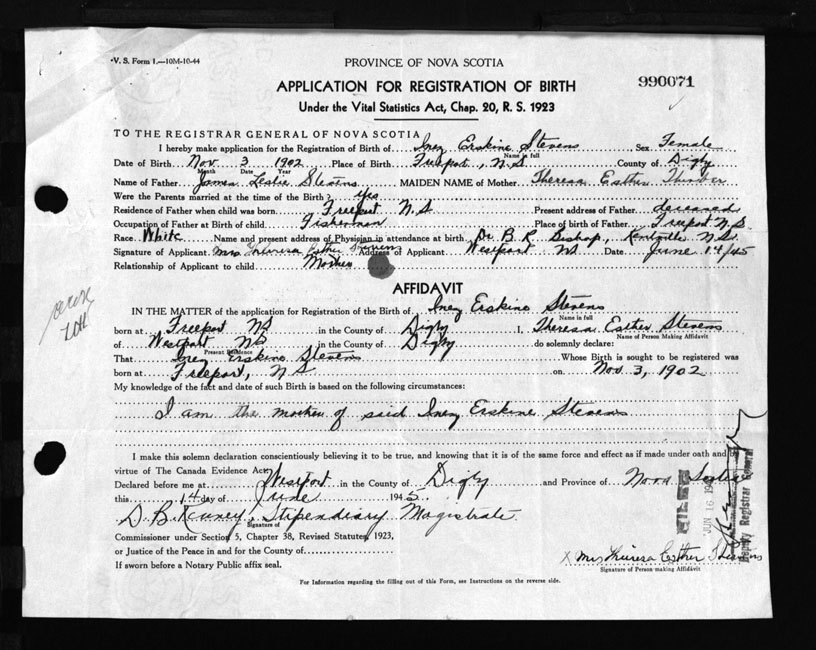 V. S. Form 1.—10M-10-44
PROVINCE OF NOVA SCOTIA
APPLICATION FOR REGISTRATION OF BIRTH
990071
Under the Vital Statistics Act, Chap. 20, R. S. 1923
TO THE REGISTRAR GENERAL OF NOVA SCOTIA
I hereby make application for the Registration of Birth of Inez Erskine Stevens Sex Female
Name in full
Date of Birth Nov 3 1902 Place of Birth Freeport, N.S County of Digby
Month Date Year
Name of Father James Leslie Stevens MAIDEN NAME of Mother Theresa Esther Thurber
Were the Parents married at the time of the Birth? Yes
Residence of Father when child was born Freeport N.S Present address of Father deceased
Occupation of Father at Birth of child Fisherman Place of birth of Father Freeport N.S.
Race White Name and present address of Physician in attendance at birth Dr. B. R Bishop, Kentville N.S.
Signature of Applicant Mrs Theresa Esther Stevens Address of Applicant Westport NS Date June 14/45
Relationship of Applicant to child Mother
AFFIDAVIT
IN THE MATTER of the application for Registration of the Birth of Inez Erskine Stevens
Name in full
born at Freeport NS in the County of Digby I, Theresa Esther Stevens
Name of Person Making Affidavit
of Westport NS in the County of Digby do solemnly declare:
Present Residence
That Inez Erskine Stevens Whose Birth is sought to be registered was
born at Freeport, NS on Nov 3, 1902
My knowledge of the fact and date of such Birth is based on the following circumstances:
I am the mother of said Inez Erskine Stevens
I make this solemn declaration conscientiously believing it to be true, and knowing that it is of the same force and effect as if made under oath and by
virtue of The Canada Evidence Act.
Declared before me at Westport in the County of Digby and Province of Nova Scotia
this 14 day of June 1945.
D. B. Kenney, Stipendiary Magistrate.
Signature of
Commissioner under Section 5, Chapter 38, Revised Statutes, 1923,
or Justice of the Peace in and for the County of
If sworn before a Notary Public affix seal.
X Mrs Theresa Esther Stevens
Signature of Person making Affidavit
For Information regarding the filling out of this Form, see Instructions on the reverse side.
JUN 16 194
Deputy Registrar General